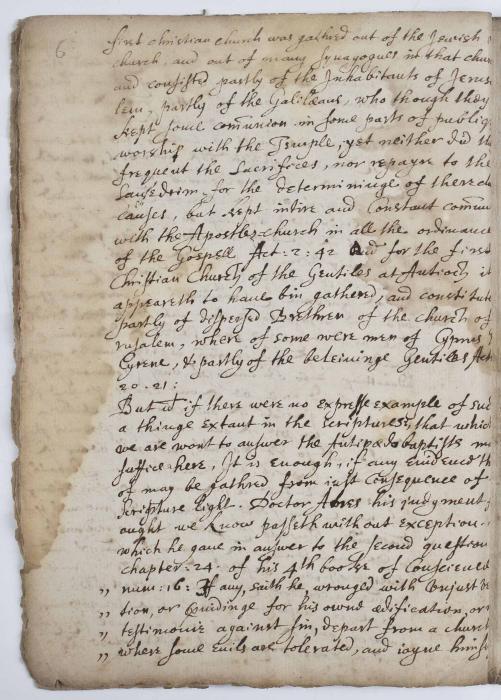 6
first christian church was gathred out of the Jewish
church, and out of many Synagogues in that
and consisted partly of the Inhabitants of Jerusa
lem, partly of the Galilæans, who though they
kept some communion in some parts of publiq
worship with the Temple, yet neither did th
frequent the Sacrifices, nor repayre to the
Sanhedrim for the determininge of there
causes, but kept intire and Constant commu
with the Apostles church in all the ordinance
of the Gospell Act: 2: 42 And for the first
Christian Church of the Gentiles at Antioch it
appeareth to have bin gathered, and constitute
partly of dispersed Brethren of the church of
rusalem, where of some were men of Cyprus
Cyrene, & partly of the beleivinge Gentiles Act
20. 21:
But wt if there were no expresse example of suc
a thinge extant in the scriptures, that which
we are wont to answer the Antipædobaptists
suffice here, It is enough, if any Evidence th
of may be gathered from iust Consequence of
scripture light. Doctor Ames his judgment
ought we know passeth without exception.
which he gave in answer to the second question
chapter: 24. of his 4th booke of Conscience
„ num: 16: If any, saith he, wronged with Uniust
„ tion, or for his owne ædification, or
„ testimonie against sin, depart from a church
„ where some Evils are tolerated, and ioyne himse